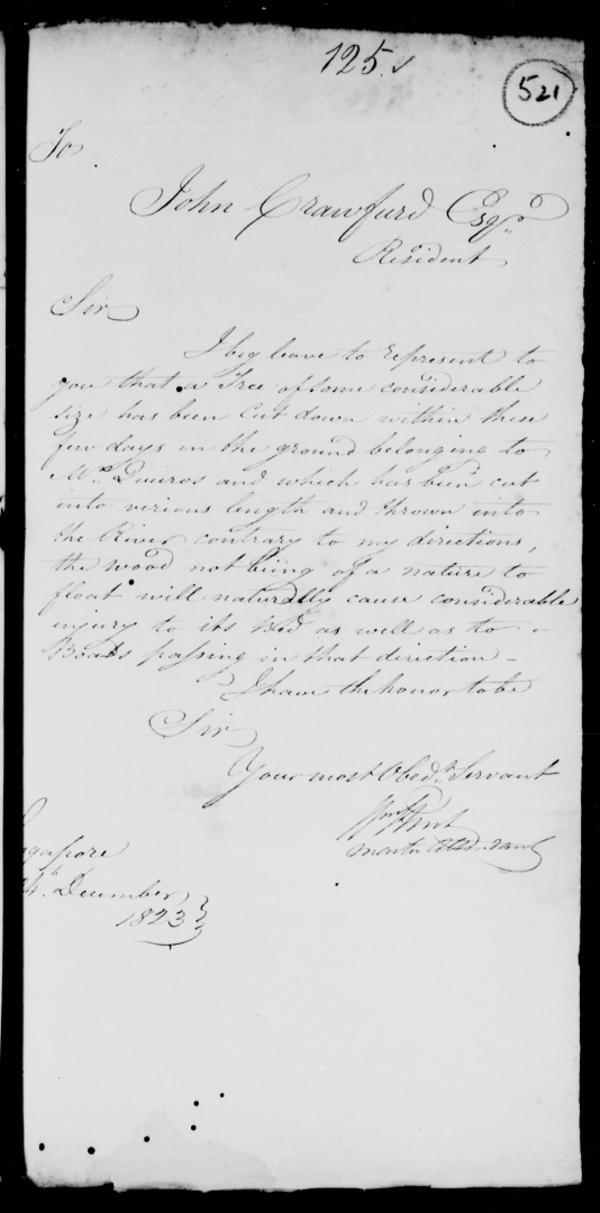 125.
521
To
John Crawfurd Esqr.
Resident
Sir
I beg leave to represent to
you that a Tree of some considerable
size has been Cut down within these
few days in the ground belonging to
Mr. Queiros and which has been cut
into verious length and thrown into
the River contrary to my directions,
the wood not being of a nature to
float will naturally cause considerable
injury to its Bed as well as to
Boats passing in that direction -
I have the honor to be
Sir
Your most Obedt. Servant
Wm Flint
Master Attendant
ngapore
24th. December
1823